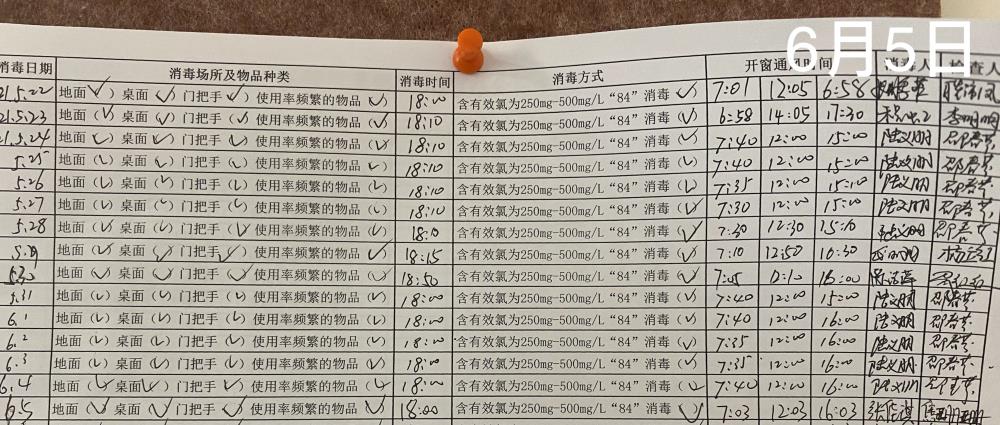 6月5日
消毒日期 消毒场所及物品种类 消毒时间 消毒方式 开窗通风时间 消毒人 检查人
21.5.22 地面(✓)桌面(✓)门把手(✓)使用率频繁的物品(✓) 18:00 含有效氯为250mg-500mg/L“84”消毒(✓) 7:01 12:05 6:58
21.5.23 地面(✓)桌面(✓)门把手(✓)使用率频繁的物品(✓) 18:10 含有效氯为250mg-500mg/L“84”消毒(✓) 6:58 14:05 17:30
21.5.24 地面(✓)桌面(✓)门把手(✓)使用率频繁的物品(✓) 18:10 含有效氯为250mg-500mg/L“84”消毒(✓) 7:40 12:00 15:00
5.25 地面(✓)桌面(✓)门把手(✓)使用率频繁的物品(✓) 18:10 含有效氯为250mg-500mg/L“84”消毒(✓) 7:40 12:00 15:00
5.26 地面(✓)桌面(✓)门把手(✓)使用率频繁的物品(✓) 18:10 含有效氯为250mg-500mg/L“84”消毒(✓) 7:35 12:00 15:00
5.27 地面(✓)桌面(✓)门把手(✓)使用率频繁的物品(✓) 18:10 含有效氯为250mg-500mg/L“84”消毒(✓) 7:30 12:00 15:00
5.28 地面(✓)桌面(✓)门把手(✓)使用率频繁的物品(✓) 18:10 含有效氯为250mg-500mg/L“84”消毒(✓) 7:30 12:30 15:10
地面(✓)桌面(✓)门把手(✓)使用率频繁的物品(✓) 18:15 含有效氯为250mg-500mg/L“84”消毒(✓) 7:10 12:50 16:30
5.30 地面(✓)桌面(✓)门把手(✓)使用率频繁的物品(✓) 18:50 含有效氯为250mg-500mg/L“84”消毒(✓) 7:05 12:10 16:00
5.31 地面(✓)桌面(✓)门把手(✓)使用率频繁的物品(✓) 18:00 含有效氯为250mg-500mg/L“84”消毒(✓) 7:40 12:00 15:00
6.1 地面(✓)桌面(✓)门把手(✓)使用率频繁的物品(✓) 18:00 含有效氯为250mg-500mg/L“84”消毒(✓) 7:40 12:00 16:00
6.2 地面(✓)桌面(✓)门把手(✓)使用率频繁的物品(✓) 18:00 含有效氯为250mg-500mg/L“84”消毒(✓) 7:35 12:00 16:00
6.3 地面(✓)桌面(✓)门把手(✓)使用率频繁的物品(✓) 18:00 含有效氯为250mg-500mg/L“84”消毒(✓) 7:35 12:00 16:00
6.4 地面(✓)桌面(✓)门把手(✓)使用率频繁的物品(✓) 18:00 含有效氯为250mg-500mg/L“84”消毒(✓) 7:40 12:00 16:00
6.5 地面(✓)桌面(✓)门把手(✓)使用率频繁的物品(✓) 18:00 含有效氯为250mg-500mg/L“84”消毒(✓) 7:03 12:03 16:03